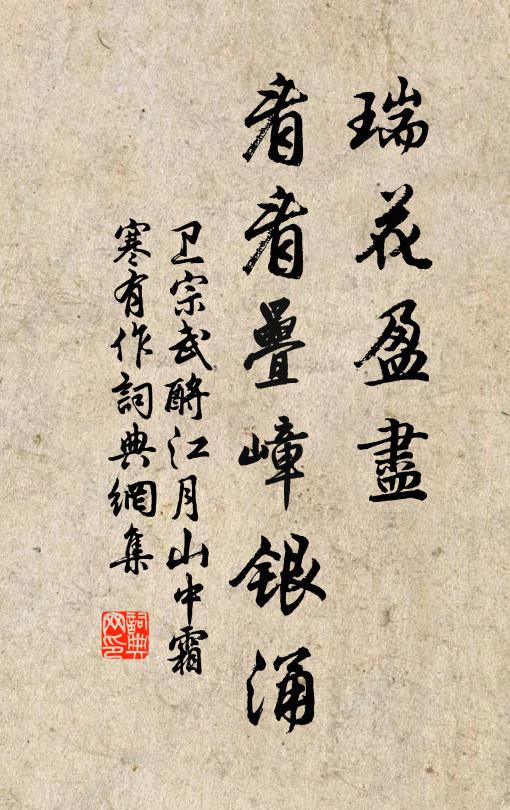 瑞花盈盡
看看疊嶂銀涌
卫宗武酹江月山中霜
寒有作詞典網集
詞典
网印